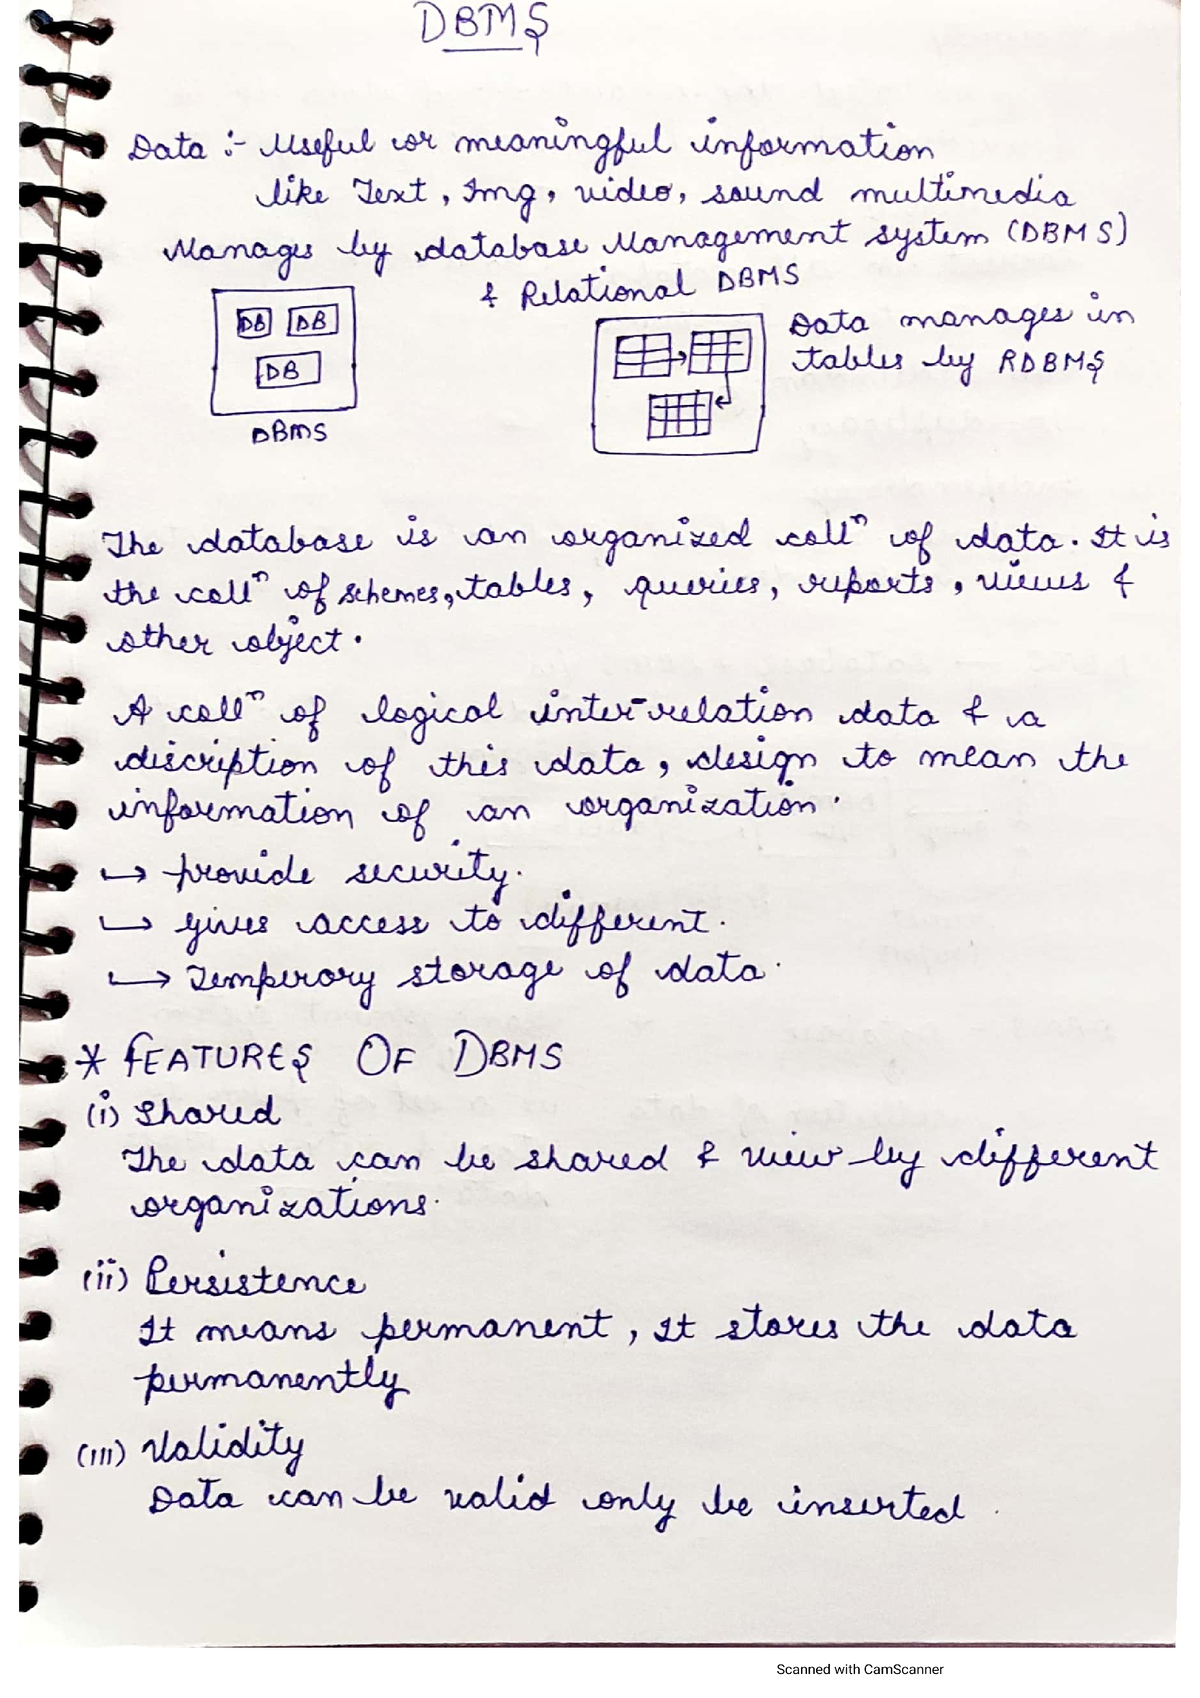 DBMS
Data :- Useful or meaningful information
like Text, Img, video, sound multimedia
Manages by database Management system (DBMS)
& Relational DBMS
DB DB
DB
DBMS
Data manages in
tables by RDBMS
The database is an organized collⁿ of data. It is
the collⁿ of schemes, tables, queries, reports, views &
other object.
A collⁿ of logical inter-relation data & a
discription of this data, design to mean the
information of an organization.
↳ provide security.
↳ gives access to different.
↳ Temperory storage of data.
* FEATURES OF DBMS
(i) Shared
The data can be shared & view by different
organizations.
(ii) Persistence
It means permanent, It stores the data
permanently
(iii) Validity
Data can be valid only be inserted
Scanned with CamScanner